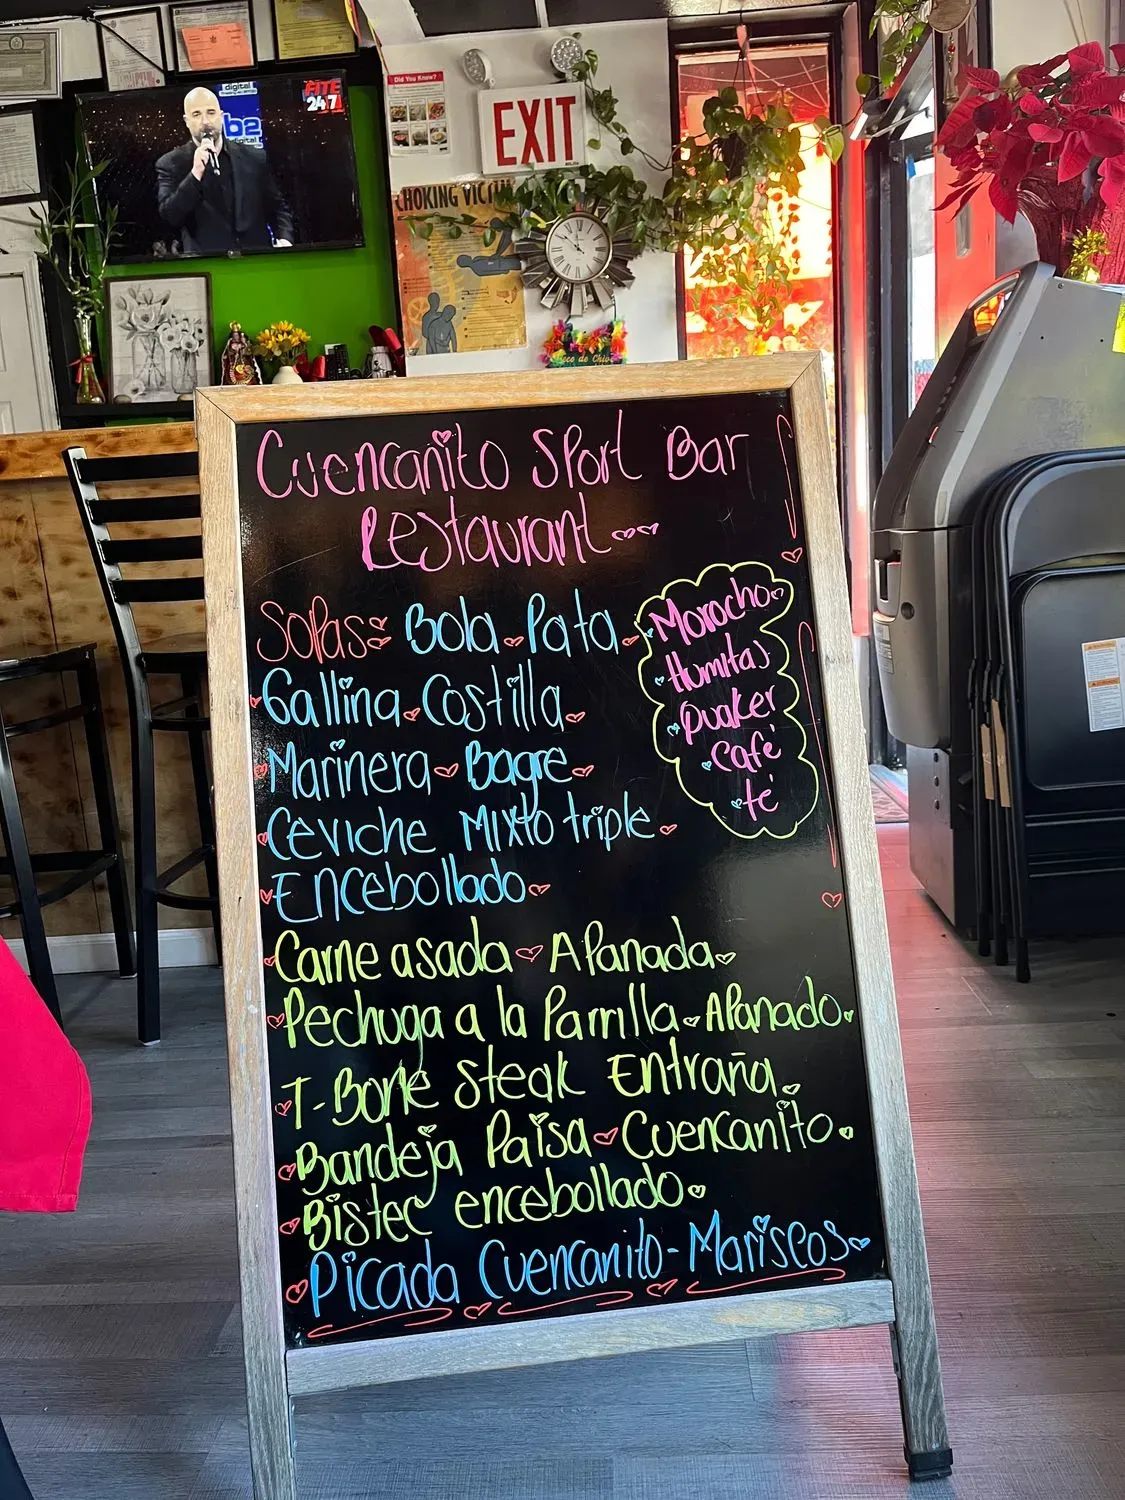 digital
b2
digital
FITE
24/7
Did You Know?
EXIT
CHOKING VICTIM
Cuencanito Sport Bar
Restaurant
Sopas: Bola Pata
Gallina Costilla
Marinera Bagre
Ceviche Mixto triple
Encebollado
Morocho
Humitas
Quaker
Café
té
Carne asada Apanada
Pechuga a la Parrilla Apanado
T-Bone Steak Entraña
Bandeja Paisa Cuencanito
Bistec encebollado
Picada Cuencanito - Mariscos